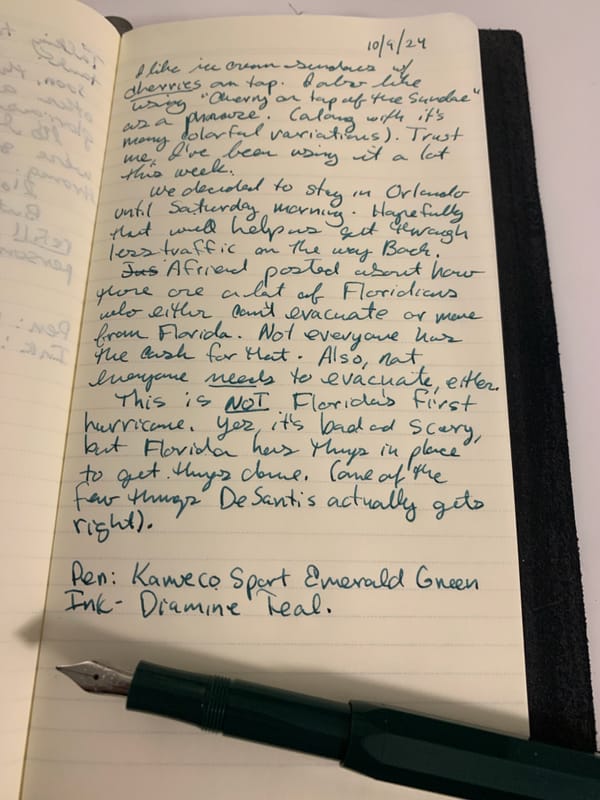 10/9/24
I like ice cream sundaes w/
cherries on top. I also like
using "Cherry on top of the Sundae"
as a phrase. (along with it's
many colorful variations). Trust
me, I've been using it a lot
this week.
We decided to stay in Orlando
until Saturday morning. Hopefully
that will help us get through
less traffic on the way Back.
Jus A friend posted about how
there are a lot of Floridians
who either can't evacuate or move
from Florida. Not everyone has
the cash for that. Also, not
everyone needs to evacuate, either.
This is NOT Florida's first
hurricane. Yes, it's bad ad scary,
but Florida has things in place
to get things done. (one of the
few things DeSantis actually gets
right).
Pen: Kaweco Sport Emerald Green
Ink- Diamine Teal.